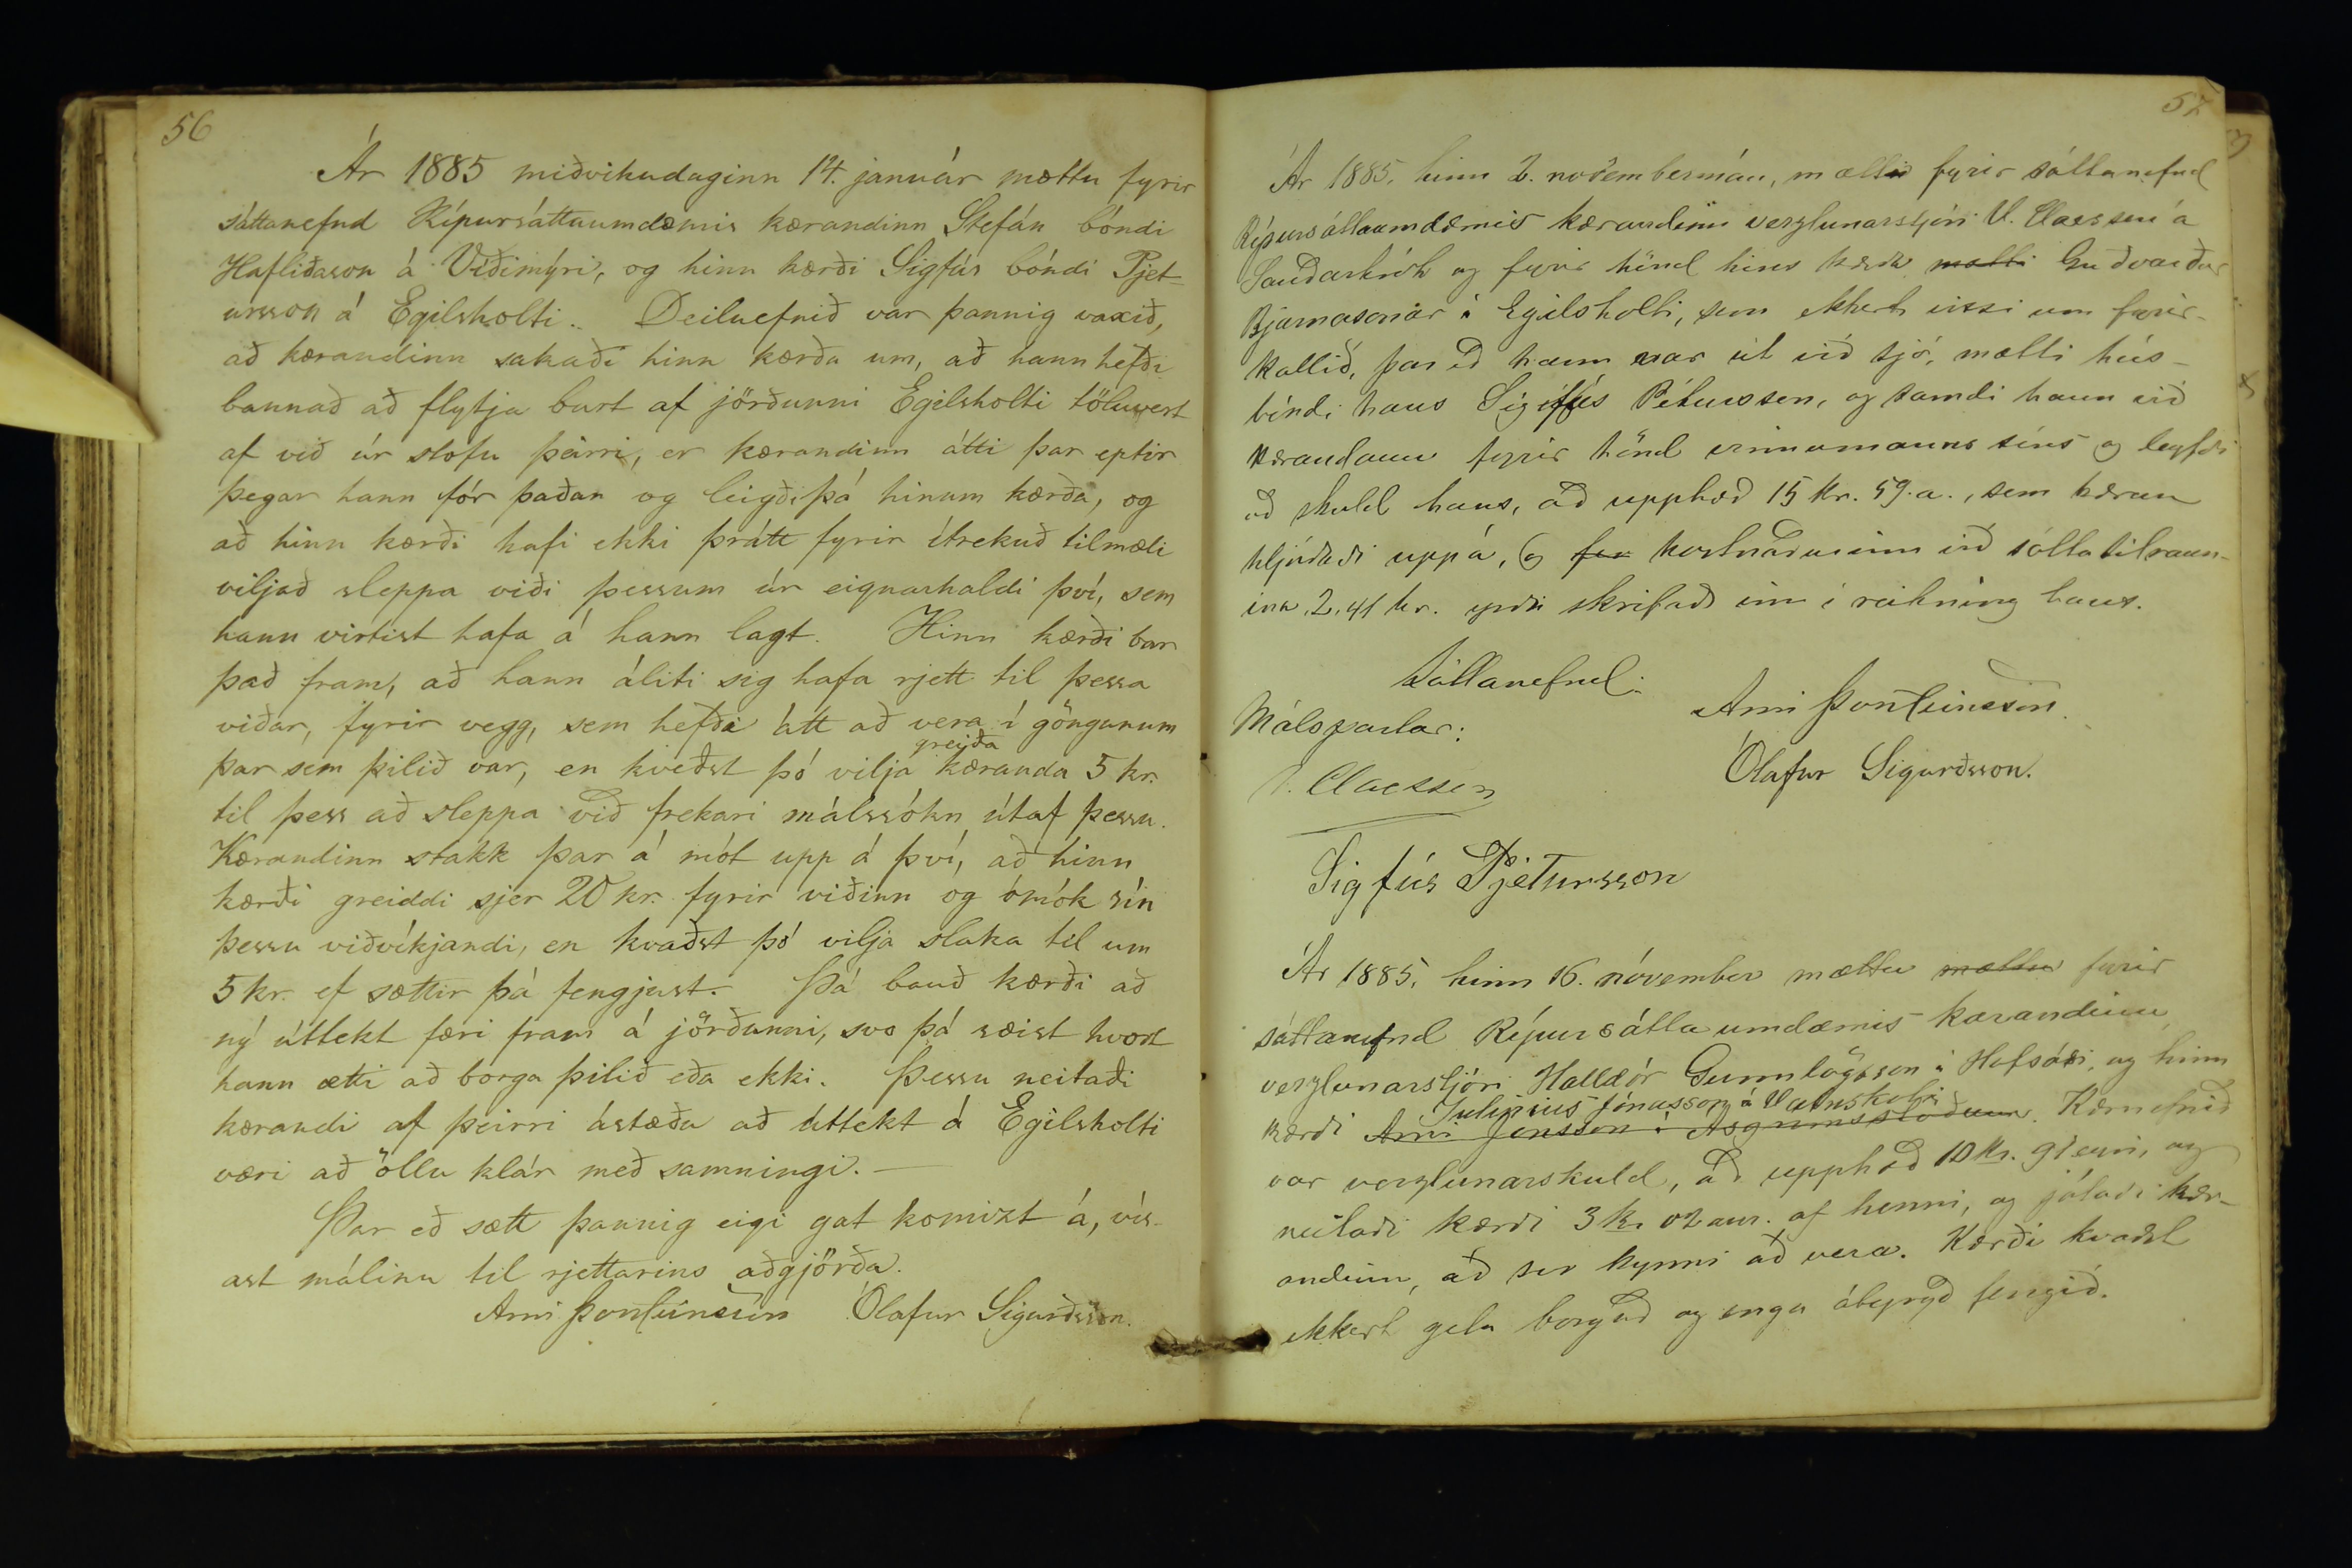 56
Ár 1885 miðvikudaginn 14. janúar mættu fyrir
sáttanefnd Rípursáttaumdæmis kærandinn Stefán bóndi
Hafliðason á Víðimýri, og hinn kærði Sigfús bóndi Pjet-
ursson á Egilsholti. Deiluefnið var þannig vaxið,
að kærandinn sakaði hinn kærða um, að hann hefði
bannað að flytja burt af jörðunni Egilsholti töluvert
af við úr stofu þeirri, er kærandinn átti þar eptir
þegar hann fór þaðan og leigði þá hinum kærða, og
að hinn kærði hafi ekki þrátt fyrir ítrekuð tilmæli
viljað sleppa viði þessum úr eignarhaldi því, sem
hann virtist hafa á hann lagt. Hinn kærði bar
það fram, að hann áliti sig hafa rjett til þessa
viðar, fyrir vegg, sem hefði átt að vera í göngunum
þar sem þilið var, en kveðst þó vilja greiða kæranda 5 kr.
til þess að sleppa við frekari málssókn útaf þessu.
Kærandinn stakk þar á mót upp á því, að hinn
kærði greiddi sjer 20 kr. fyrir viðinn og ómök sín
þessu viðvíkjandi, en kvaðst þó vilja slaka til um
5 kr. ef sættir þá fengjust. Þá bauð kærði að
ný úttekt færi fram á jörðunni, svo þá sæist hvort
hann ætti að borga þilið eða ekki. Þessu neitaði
kærandi af þeirri ástæðu að úttekt á Egilsholti
væri að öllu klár með samningi. —
Þar eð sætt þannig eigi gat komizt á, vís-
ast málinu til rjettarins aðgjörða.
Arni Þorsteinsson Ólafur Sigurðsson.
57
Ár 1885, hinn 2. novembermán, mætti fyrir sáttanefnd
Rípursáttaumdæmis kærandinn verzlunarstjóri V. Claessen á
Sauðarkrók og fyrir hönd hins kærða mætti Guðvarðar
Bjarnasonar á Egilsholti, sem ekkert vissi um fyrir-
kallið, þar eð hann var út við sjó, mætti hús-
bóndi hans Sigifús Pétursson, og samdi hann við
kærandann fyrir hönd vinnumanns síns og leyfði
að skuld hans, að upphæð 15 kr. 59. a., sem kæran
hljóðaði uppá, og for kostnaðurinn við sáttatilraun-
ina, 2,41 kr. yrði skrifað inn í reikning hans.
Sáttanefnd:
Málspartar: Arni Þorsteinsson
V. Claessen Ólafur Sigurðsson.
Sigfús Pjetursson
Ár 1885, hinn 16. nóvember mættu mættu fyrir
sáttanefnd Rípursáttaumdæmis kærandinn
verzlunarstjóri Halldór Gunnlögsson á Hofsósi, og hinn
Julíus Jónasson á Vatnskoti
kærði Arni Jónsson á Asgrimsstöðum. Kæruefnið
var verzlunarskuld, að upphæð 10 kr. 91 eyri, og
neitaði kærði 3 kr 02 aur. af henni, og játaði kær-
andinn, að svo kynni að vera. Kærði kvaðst
ekkert geta borgað og enga ábyrgð fengið.